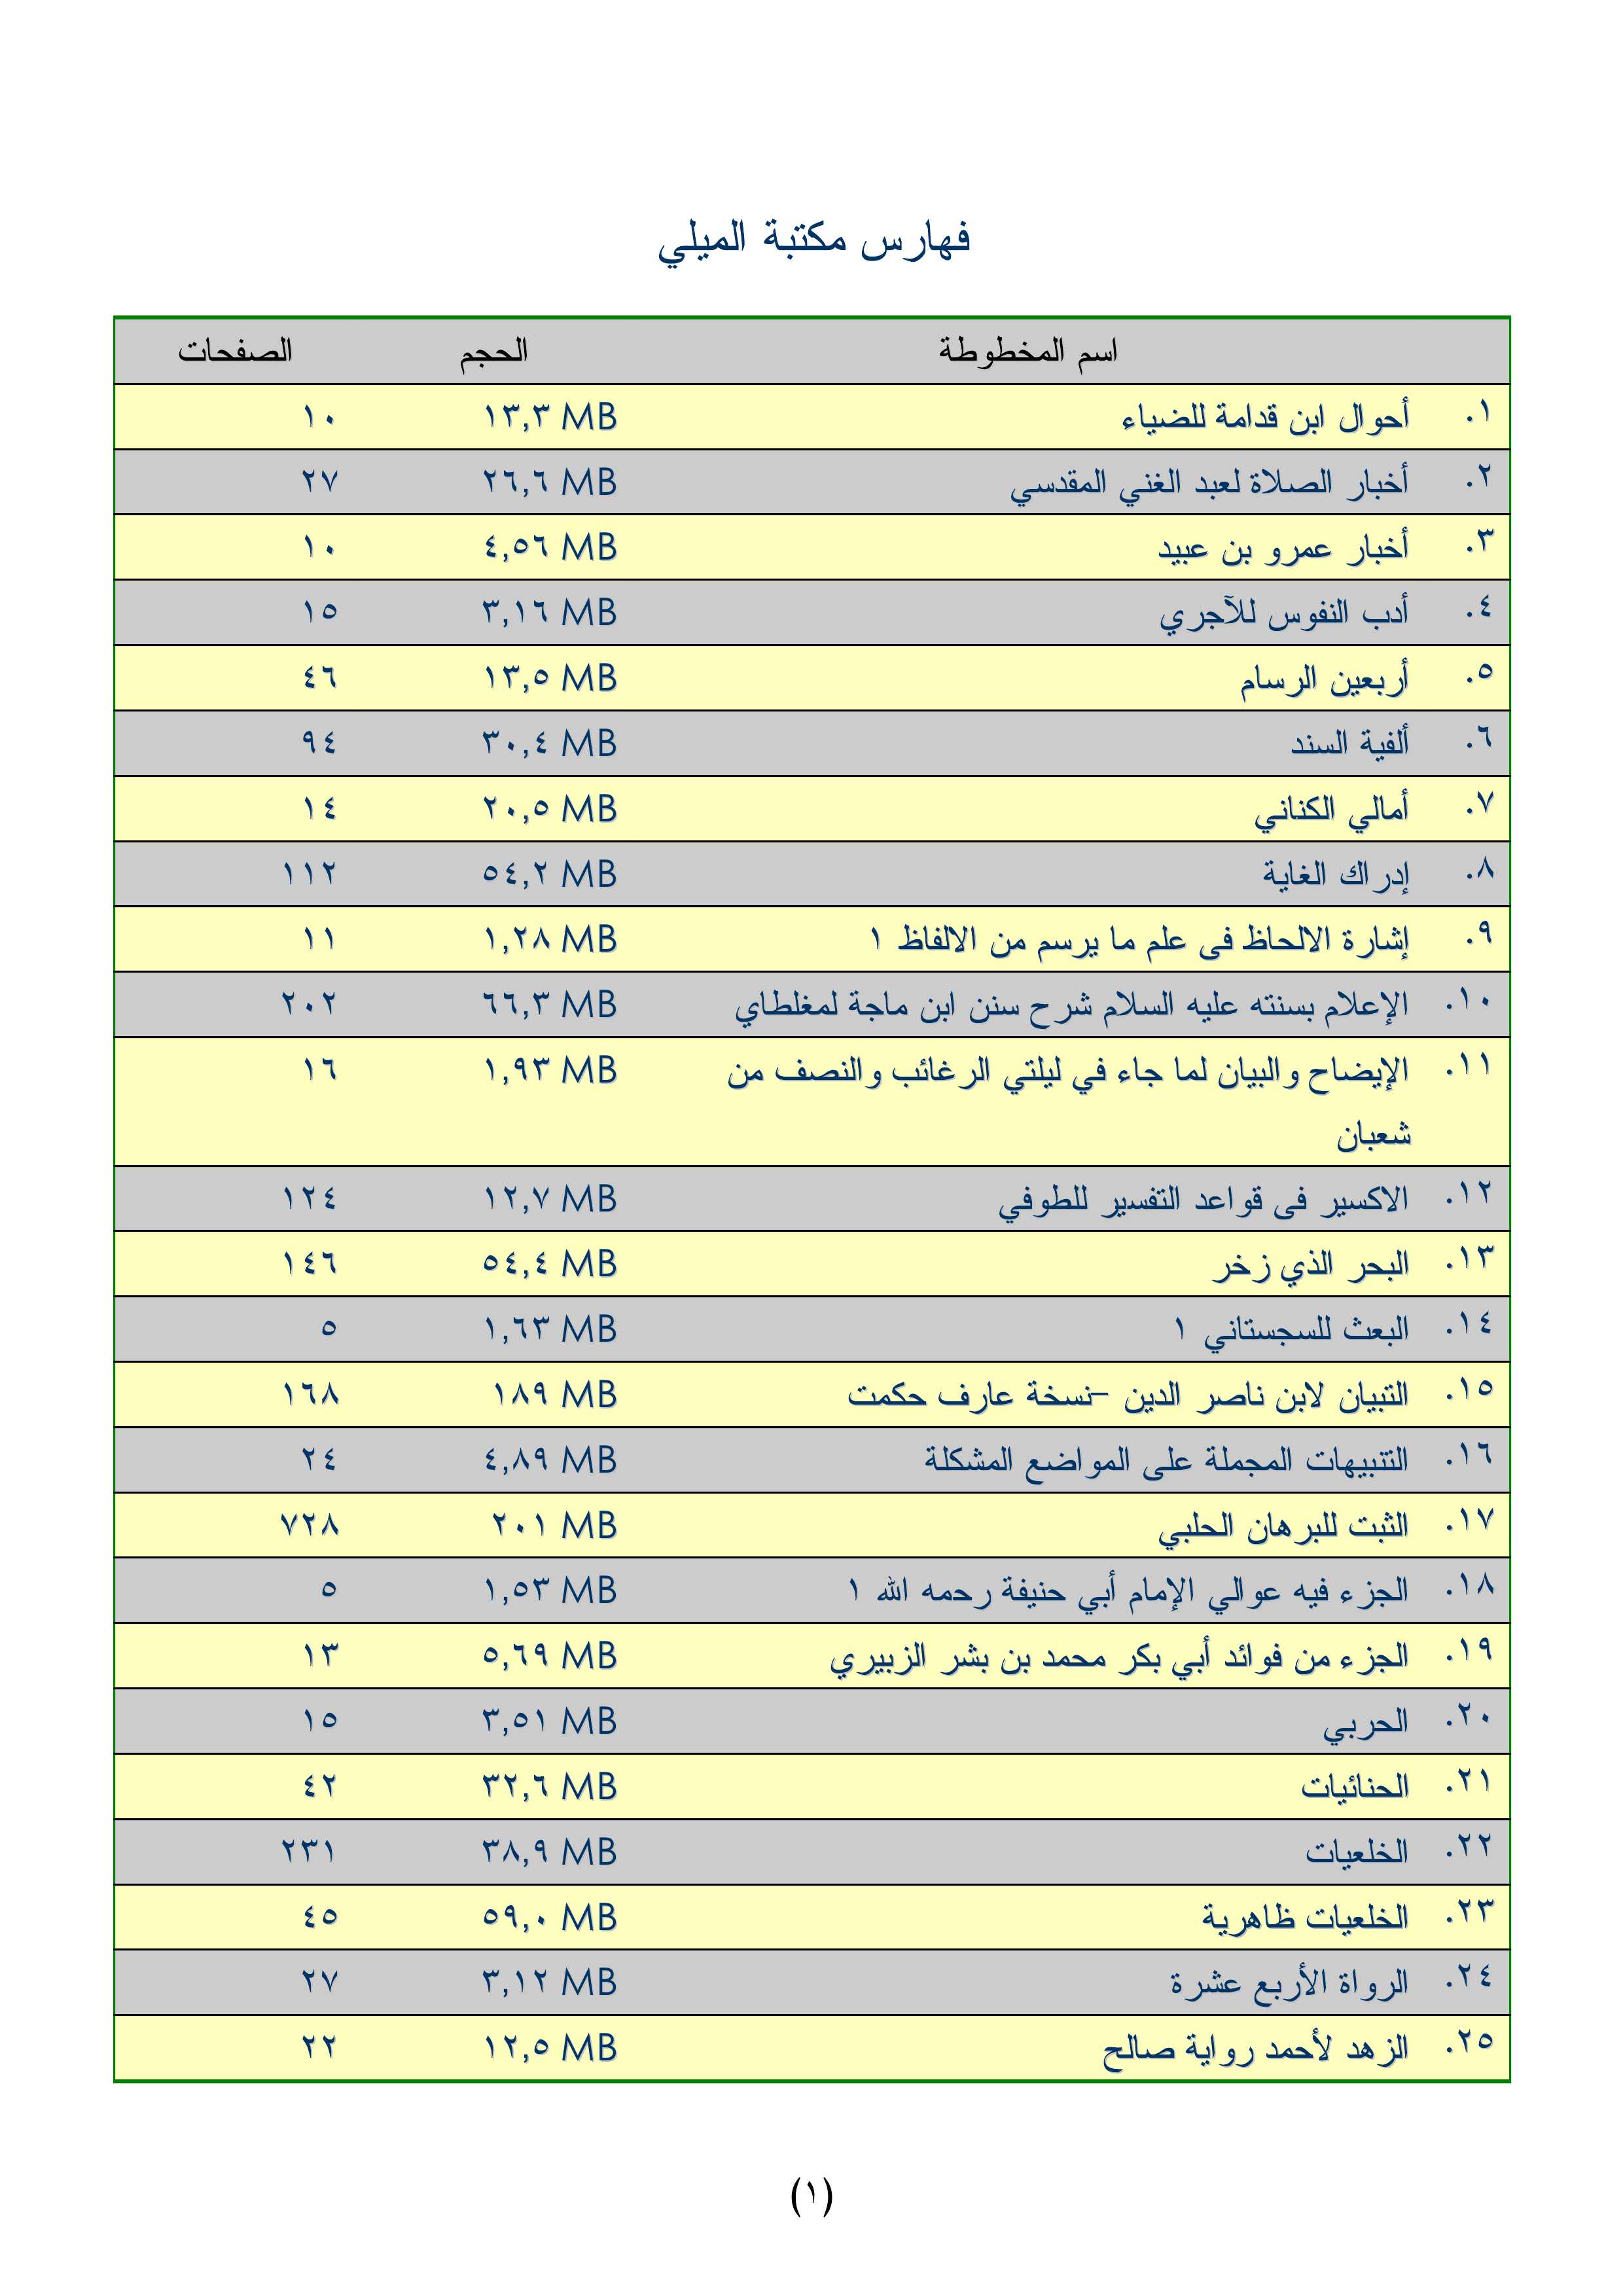 فهارس مكتبة الميلي
اسم المخطوطة الحجم الصفحات
١. أحوال ابن قدامة للضياء ١٣,٣ MB ١٠
٢. أخبار الصلاة لعبد الغني المقدسي ٢٦,٦ MB ٢٧
٣. أخبار عمرو بن عبيد ٤,٥٦ MB ١٠
٤. أدب النفوس للآجري ٣,١٦ MB ١٥
٥. أربعين الرسام ١٣,٥ MB ٤٦
٦. ألفية السند ٣٠,٤ MB ٩٤
٧. أمالي الكناني ٢٠,٥ MB ١٤
٨. إدراك الغاية ٥٤,٢ MB ١١٢
٩. إشارة الالحاظ فى علم ما يرسم من الالفاظ ١ ١,٢٨ MB ١١
١٠. الإعلام بسنته عليه السلام شرح سنن ابن ماجة لمغلطاي ٦٦,٣ MB ٢٠٢
١١. الإيضاح والبيان لما جاء في ليلتي الرغائب والنصف من ١,٩٣ MB ١٦
شعبان
١٢. الاكسير فى قواعد التفسير للطوفي ١٢,٧ MB ١٢٤
١٣. البحر الذي زخر ٥٤,٤ MB ١٤٦
١٤. البعث للسجستاني ١ ١,٦٣ MB ٥
١٥. التبيان لابن ناصر الدين –نسخة عارف حكمت ١٨٩ MB ١٦٨
١٦. التنبيهات المجملة على المواضع المشكلة ٤,٨٩ MB ٢٤
١٧. الثبت للبرهان الحلبي ٢٠١ MB ٧٢٨
١٨. الجزء فيه عوالي الإمام أبي حنيفة رحمه الله ١ ١,٥٣ MB ٥
١٩. الجزء من فوائد أبي بكر محمد بن بشر الزبيري ٥,٦٩ MB ١٣
٢٠. الحربي ٣,٥١ MB ١٥
٢١. الحنائيات ٣٢,٦ MB ٤٢
٢٢. الخلعيات ٣٨,٩ MB ٢٣١
٢٣. الخلعيات ظاهرية ٥٩,٠ MB ٤٥
٢٤. الرواة الأربع عشرة ٣,١٢ MB ٢٧
٢٥. الزهد لأحمد رواية صالح ١٢,٥ MB ٢٢
(١)